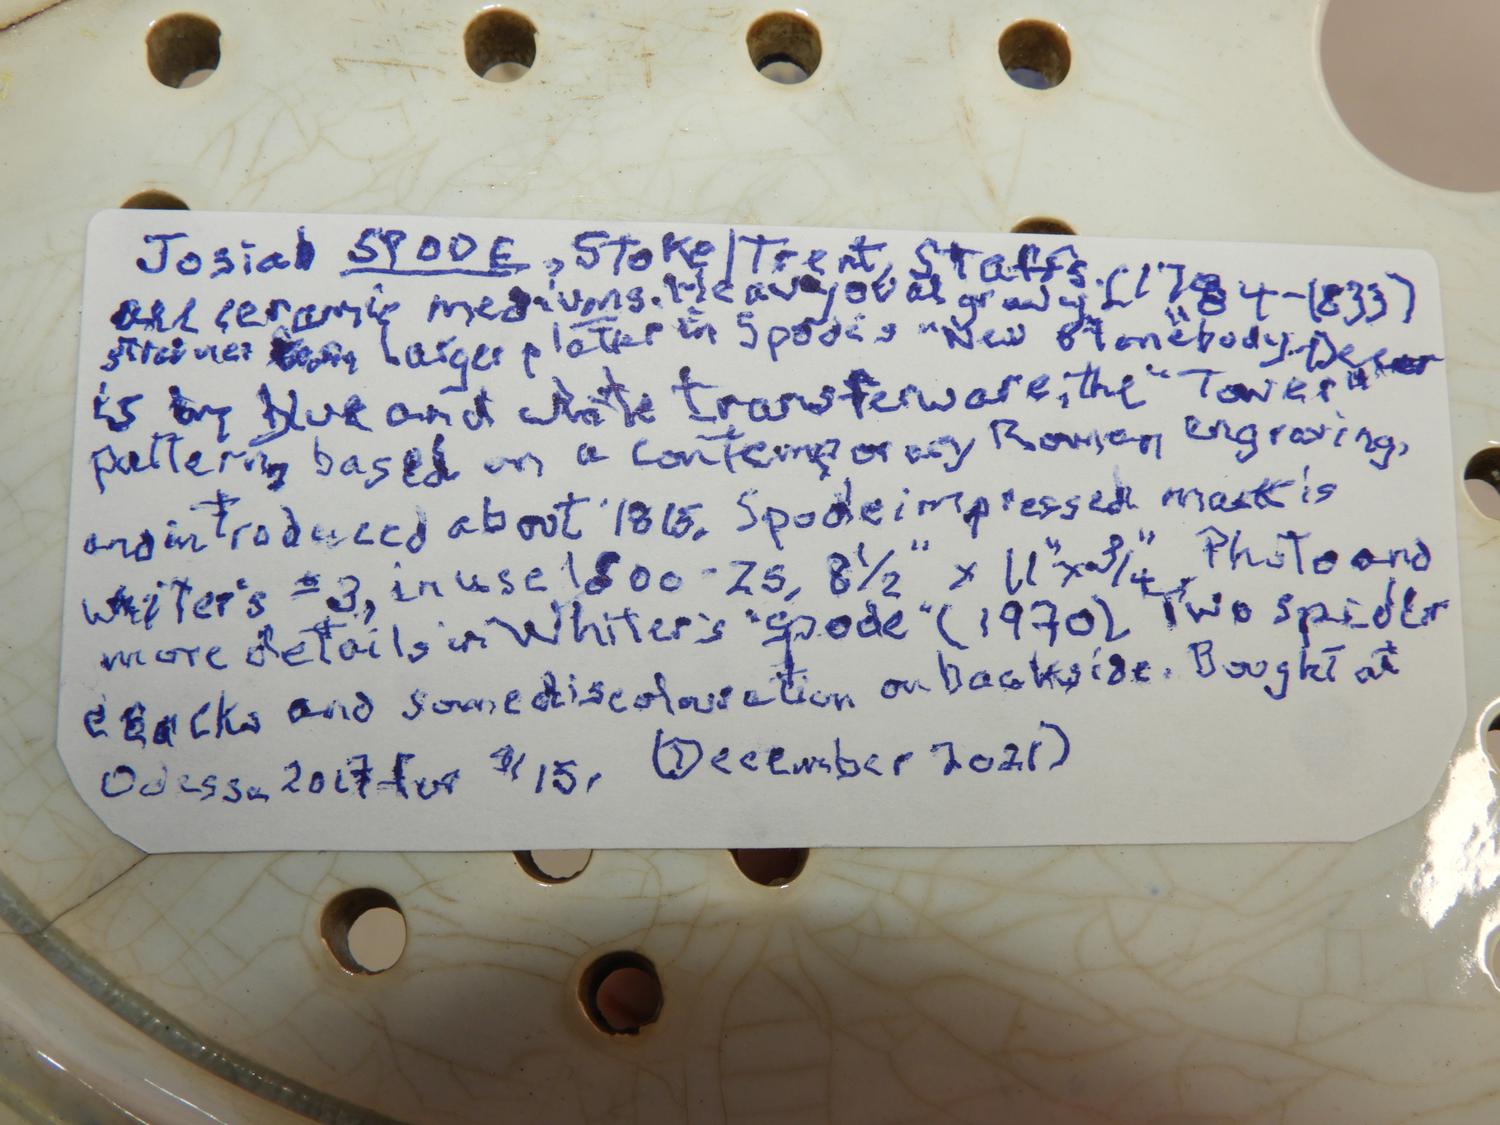 Josiah SPODE, Stoke/Trent, Staffs. (1784-1833)
all ceramic mediums. Heavy oval gravy
strainer from larger platter in Spode's "New Stone" body. Decor
is by blue and white transferware, the "Tower"
pattern, based on a contemporary Roman engraving,
and introduced about 1815. Spode impressed mark is
Whiter's #3, in use 1800-25, 8½" x 11" x ¾". Photo and
more details in Whiter's "Spode" (1970). Two spider
cracks and some discolouration on backside. Bought at
Odessa 2017 for $15. (December 2021)